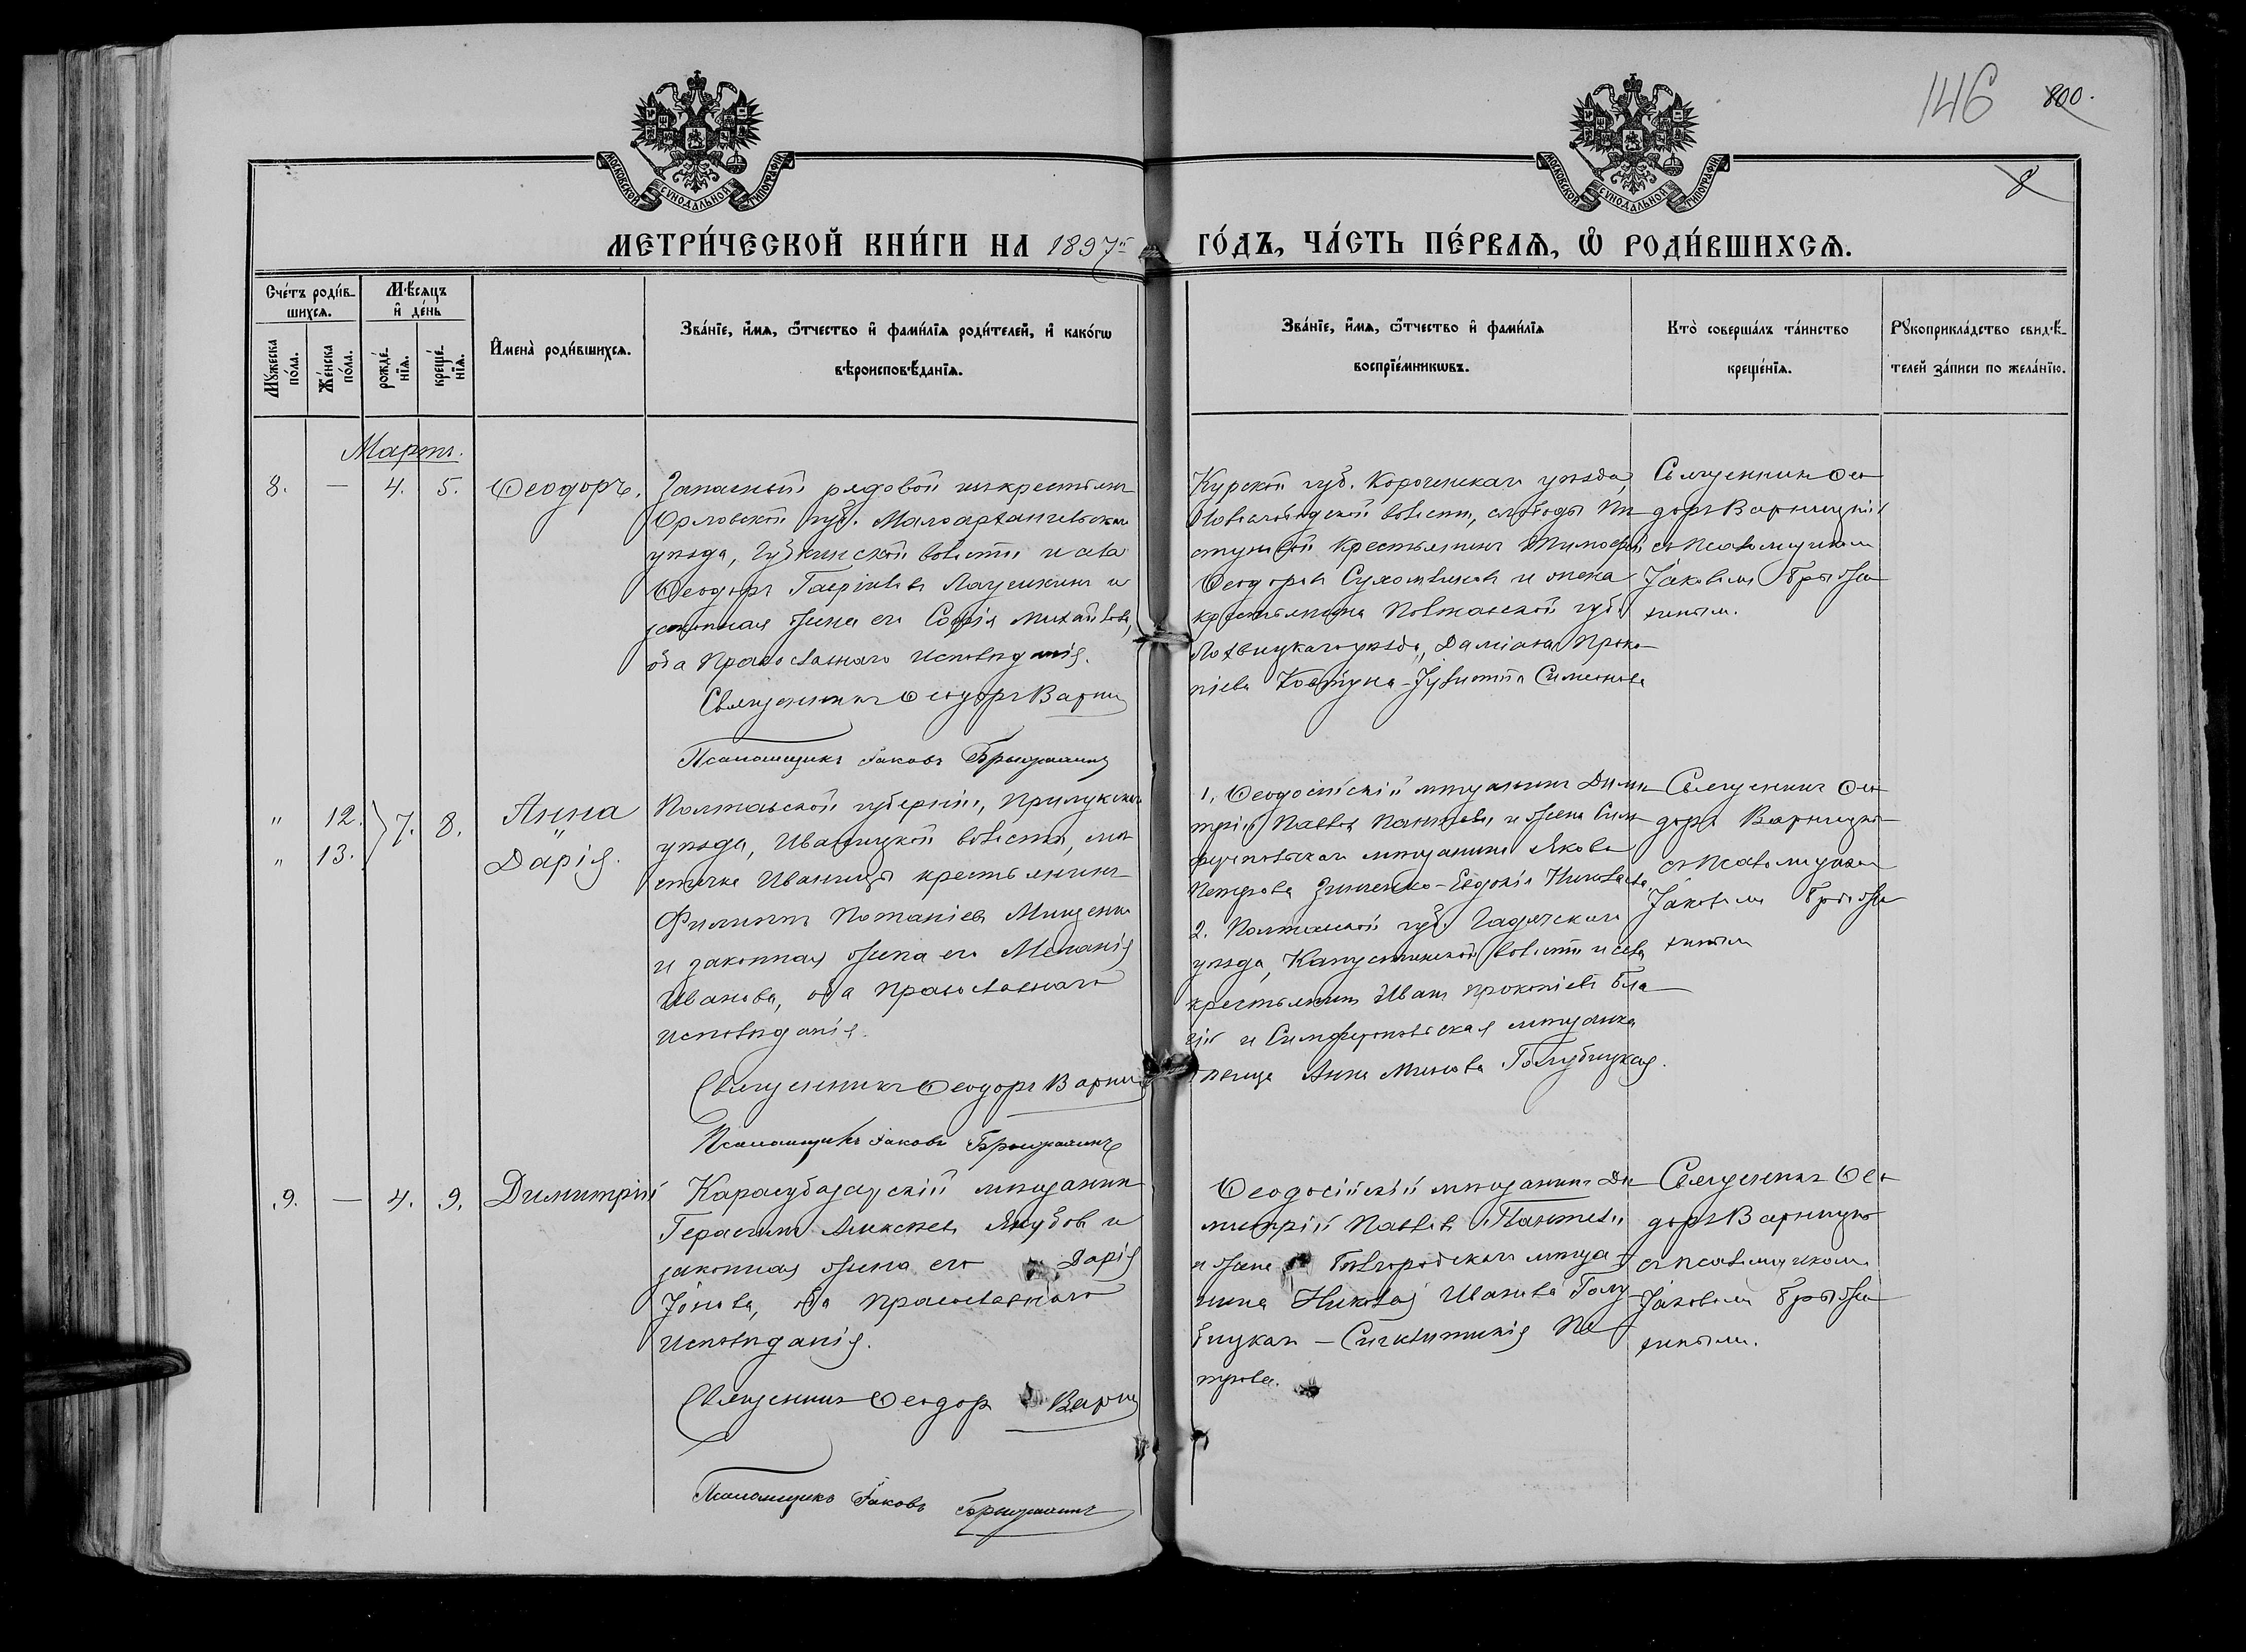 146 800.
8
МОСКОВСКОЙ СѴНОДАЛЬНОЙ ТИПОГРАФІИ
МОСКОВСКОЙ СѴНОДАЛЬНОЙ ТИПОГРАФІИ
МЕТРИ́ЧЕСКОЙ КНИ́ГИ НА 1897й ГО́ДЪ, ЧА́СТЬ ПЕ́РВАѦ, Ѽ РОДИ́ВШИХСѦ.
Счéтъ роди́в-
шихсѧ.
Мꙋ́жеска
по́ла.
Же́нска
по́ла.
Мѣ́сѧцъ
и҆ де́нь
рожде́-
нїѧ.
креще́-
нїѧ.
И҆мена̀ роди́вшихсѧ.
Зва́нїе, и҆́мѧ, ѻ҆́тчество и҆ фами́лїѧ роди́телей, и҆ како́гѡ
вѣроисповѣ́данїѧ.
Зва́нїе, и҆́мѧ, ѻ҆́тчество и҆ фами́лїѧ
воспрїе́мникѡвъ.
Кто̀ соверша́лъ та́инство
креще́нїѧ.
Рꙋкоприкла́дство свидѣ́-
телей за́писи по жела́нїю.
Мартъ.
8. — 4. 5. Ѳеодоръ.
Запасный рядовой изъ крестьянъ
Орловской губ. Малоархангельскаго
уѣзда, Губкинской волости и села
Ѳеодоръ Лаушкинъ и
законная жена его Софія Михайлова,
оба Православнаго исповѣданія.
Священникъ Ѳеодоръ Варниц
Псаломщикъ Іаковъ Брыжахинъ
Курской губ. Корочанскаго уѣзда,
волости, слободы
крестьянинъ Тимоѳей
Ѳеодоровъ и жена
крестьянина Полтавской губ.
Лохвицкаго уѣзда, Даміана Проко-
піева Ковтуна - Іулиттa Симеонова
Священникъ Ѳео-
доръ Варницкій
съ псаломщикомъ
Іаковомъ Брыжа-
хинымъ.
" 12. } 7. 8. Анна
" 13. " Дарія.
Полтавской губерніи, Прилукскаго
уѣзда, Иваницкой волости, мѣ-
стечка Иваницы крестьянинъ
Филиппъ Потапіевъ Мищенко
и законная жена его Меланія
Иванова, оба Православнаго
исповѣданія.
Священникъ Ѳеодоръ Варниц
Псаломщикъ Іаковъ Брыжахинъ
1. Ѳеодосійскій мѣщанинъ Дими-
трій Павловъ и жена Сим-
феропольскаго мѣщанина Якова
Петрова Зинченко - Евдокія Николаева.
2. Полтавской губ. Гадячскаго
уѣзда, Капустинской волости и села
крестьянинъ Иванъ Прокопіевъ Бла-
гій и Симферопольская мѣщанка
дѣвица Анна Минова Голубицкая.
Священникъ Ѳео-
доръ Варницкій
съ псаломщикомъ
Іаковомъ Брыжа-
хинымъ
9. — 4. 9. Димитрій
Карасубазарскій мѣщанинъ
Герасимъ Алексѣевъ Якубовъ и
законная жена его Дарія
Іонова, оба Православнаго
исповѣданія.
Священникъ Ѳеодоръ Варниц
Псаломщикъ Іаковъ Брыжахинъ
Ѳеодосійскій мѣщанинъ Ди-
митрій Павловъ
и жена мѣща-
нина Николая Иванова Голу-
бицкаго - Синклитикія Пе-
трова.
Священникъ Ѳео-
доръ Варницкій
съ псаломщикомъ
Іаковомъ Брыжа-
хинымъ.